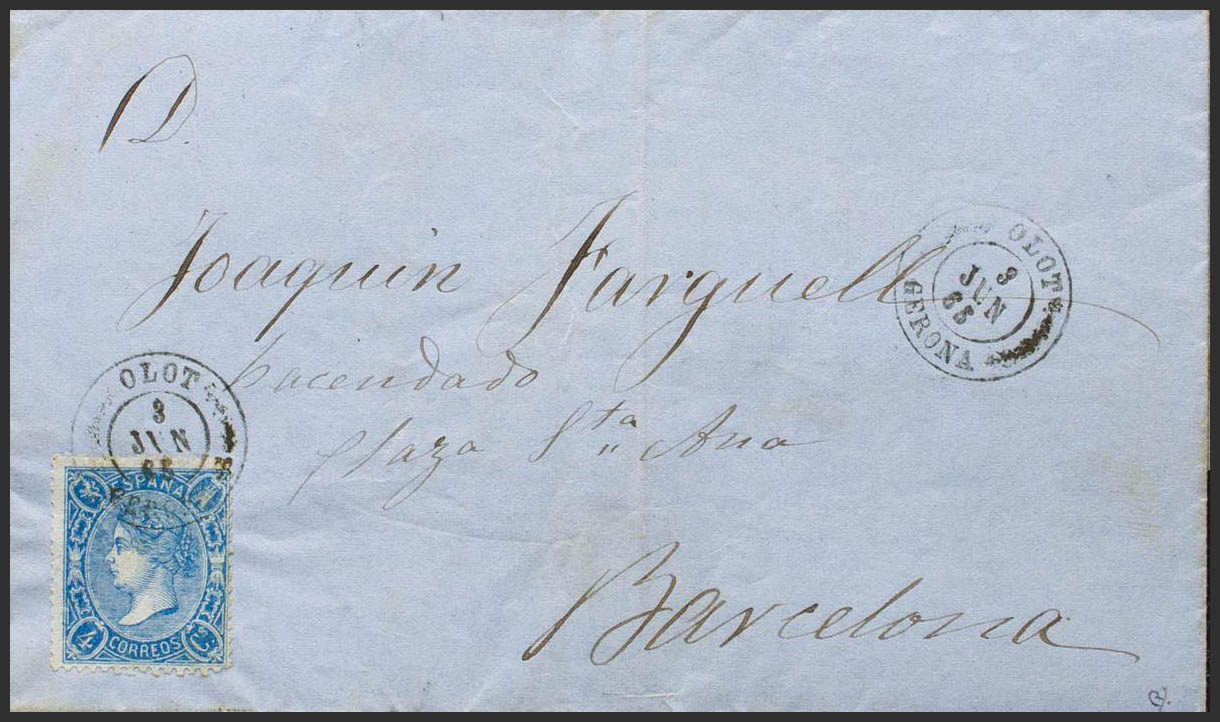 D.
Joaquin Farguell
hacendado
plaza Sta Ana
Barcelona
OLOT
3
JUN
65
GERONA
OLOT
3
JUN
65
ESPAÑA
4
CORREOS